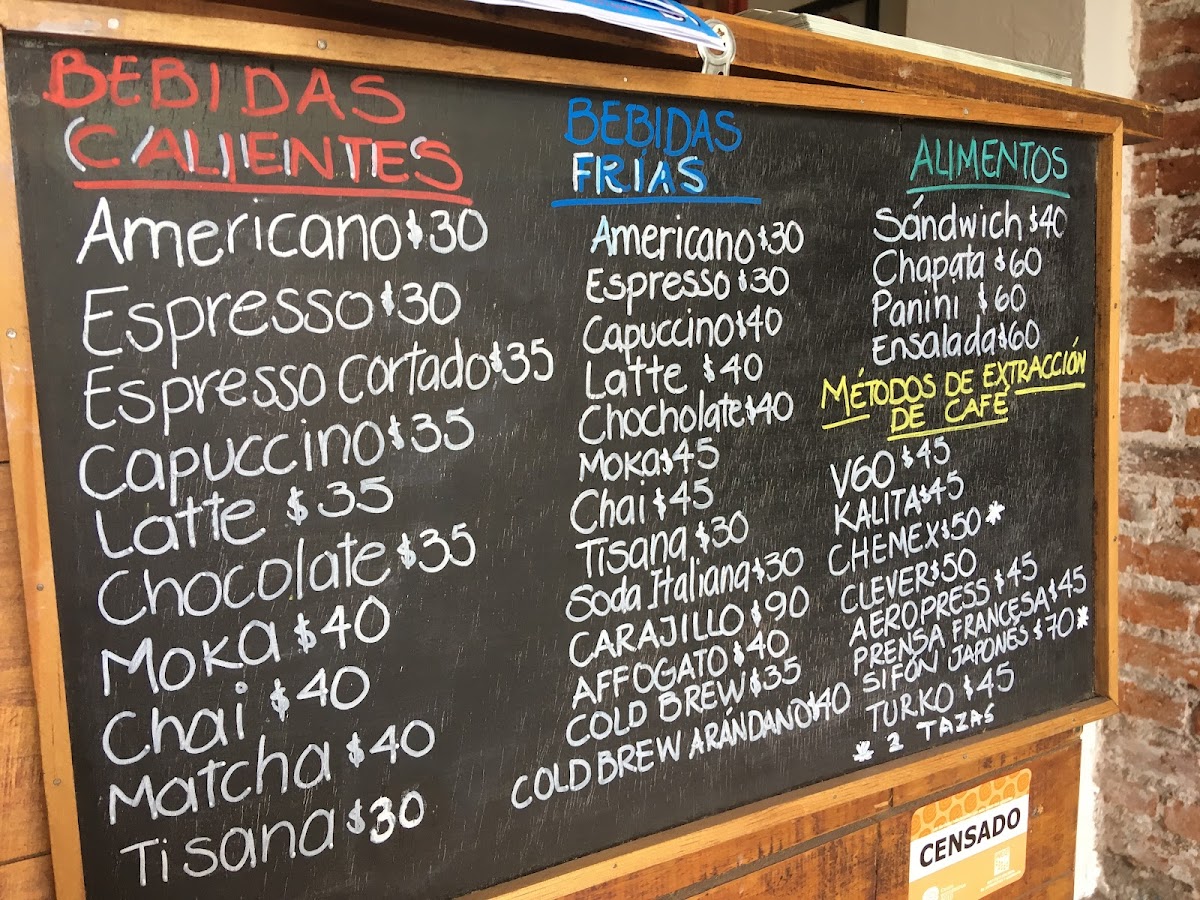 BEBIDAS
CALIENTES
Americano $30
Espresso $30
Espresso Cortado $35
Capuccino $35
Latte $35
Chocolate $35
Moka $40
Chai $40
Matcha $40
Tisana $30
BEBIDAS
FRÍAS
Americano $30
Espresso $30
Capuccino $40
Latte $40
Chocholate $40
Moka $45
Chai $45
Tisana $30
Soda Italiana $30
CARAJILLO $90
AFFOGATO $40
COLD BREW $35
COLD BREW ARÁNDANO $40
ALIMENTOS
Sándwich $40
Chapata $60
Panini $60
Ensalada $60
MÉTODOS DE EXTRACCIÓN
DE CAFÉ
V60 $45
KALITA $45
CHEMEX $50 *
CLEVER $50
AEROPRESS $45
PRENSA FRANCESA $45
SIFÓN JAPONÉS $70 *
TURKO $45
* 2 TAZAS
CENSADO